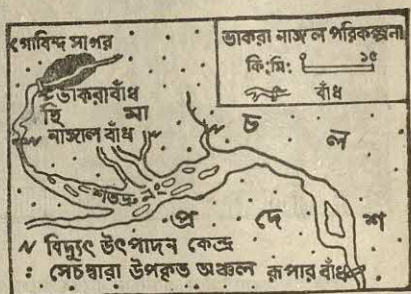 গোবিন্দ সাগর
ভাকরা নাঙ্গল পরিকল্পনা
কি:মি: ১৫
বাঁধ
ভাকরাবাঁধ
হি মা চ ল
নাঙ্গাল বাঁধ
শতদ্রু নঃ
প্র দে শ
বিদ্যুৎ উৎপাদন কেন্দ্র
: সেচদ্বারা উপকৃত অঞ্চল রূপার বাঁধ